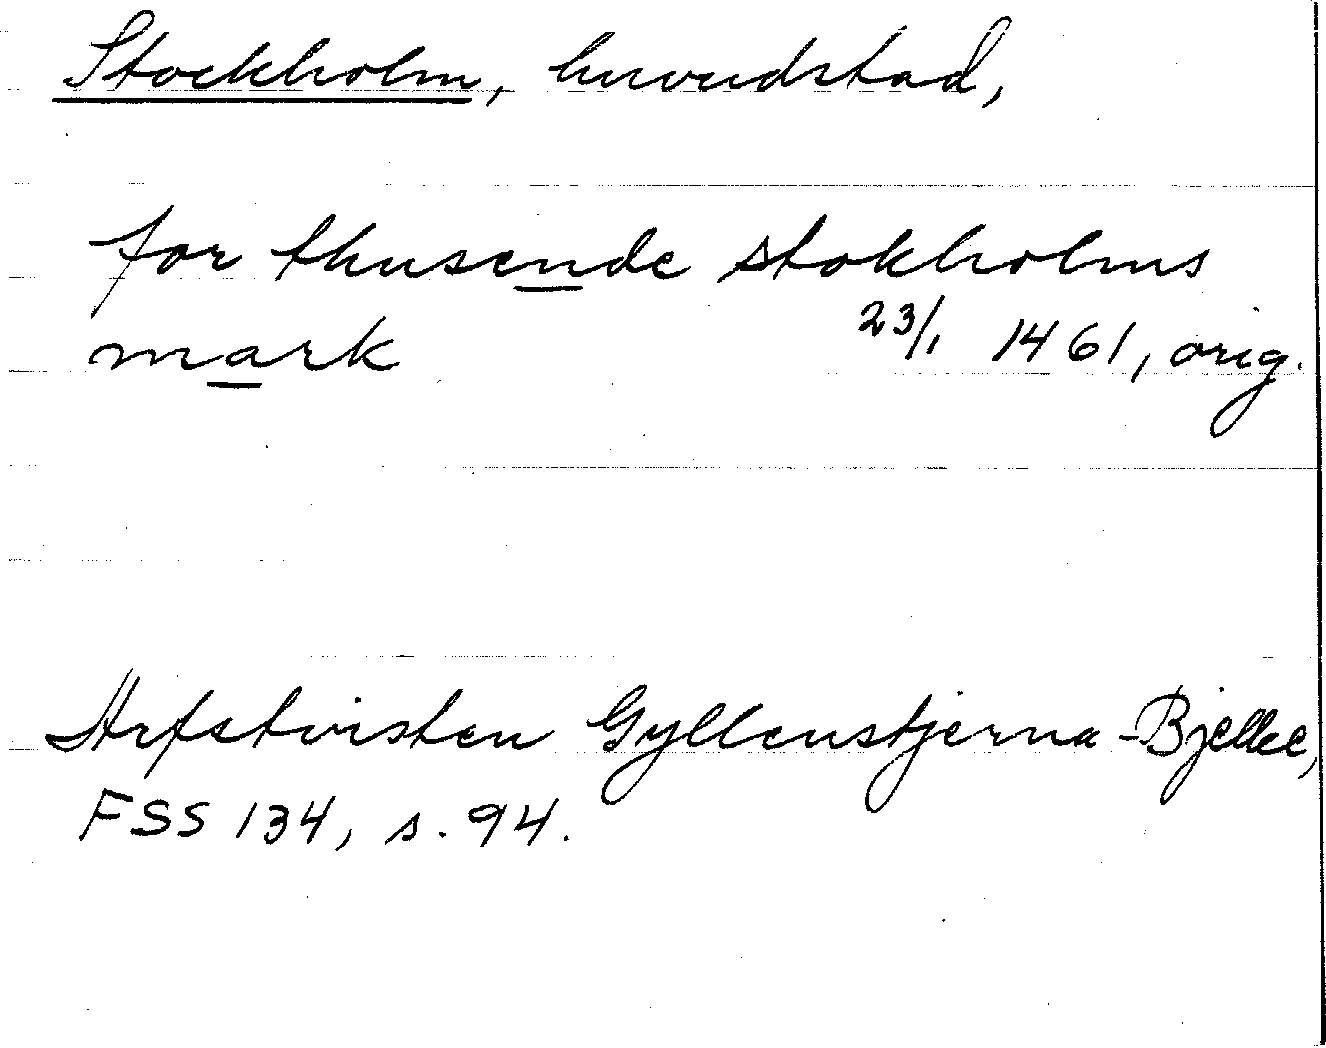 Stockholm, huvudstad,
for thusende stokholms
mark 23/1 1461, orig.
Arfstvisten Gyllenstjerna-Bjelke,
FSS 134, s. 94.